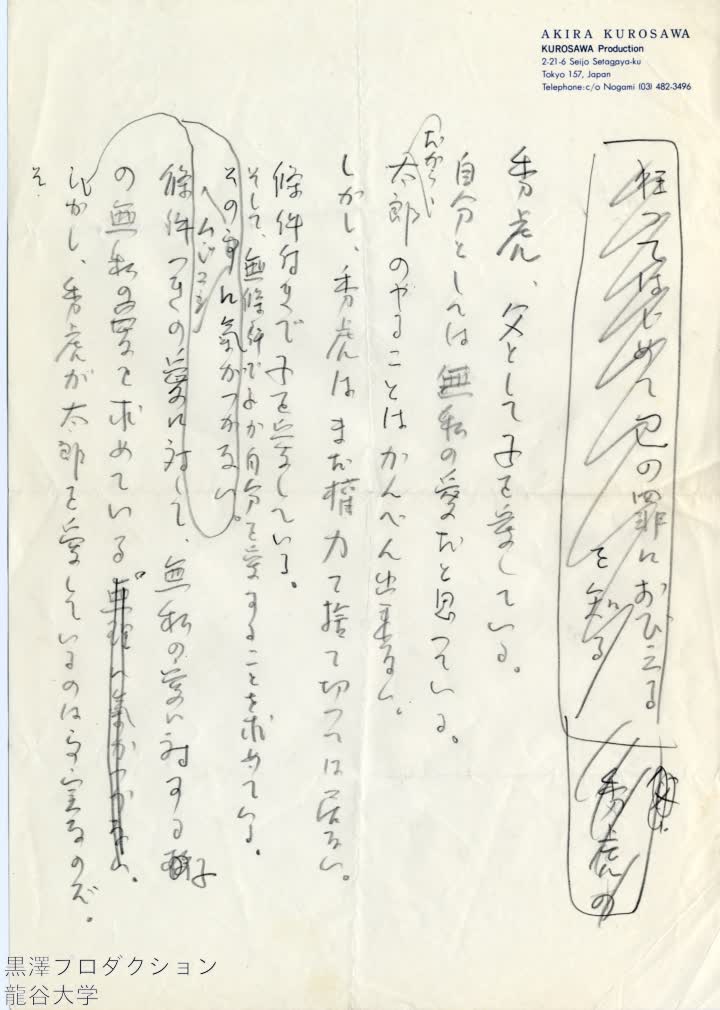 AKIRA KUROSAWA
KUROSAWA Production
2-21-6 Seijo Setagaya-ku
Tokyo 157, Japan
Telephone:c/o Nogami (03) 482-3496
狂ってはじめて己の罪におびえる
を知る
秀虎の
秀虎、父として子を愛している。
自分としては無私の愛だと思っている。
だから、
太郎のやることはかんべん出来ない。
しかし、秀虎はまだ權力て捨て切っては居ない。
條件付きで子を愛している。
そして、無條件で子が自分を愛することを求めている。
その事に氣がつかない。
ムジュン
條件つきの愛に対して、無私の愛に対する子
の無私の愛を求めている。無理に氣がつかない。
しかし、秀虎が太郎を愛しているのは事実なのだ。
そ
黒澤プロダクション
龍谷大学